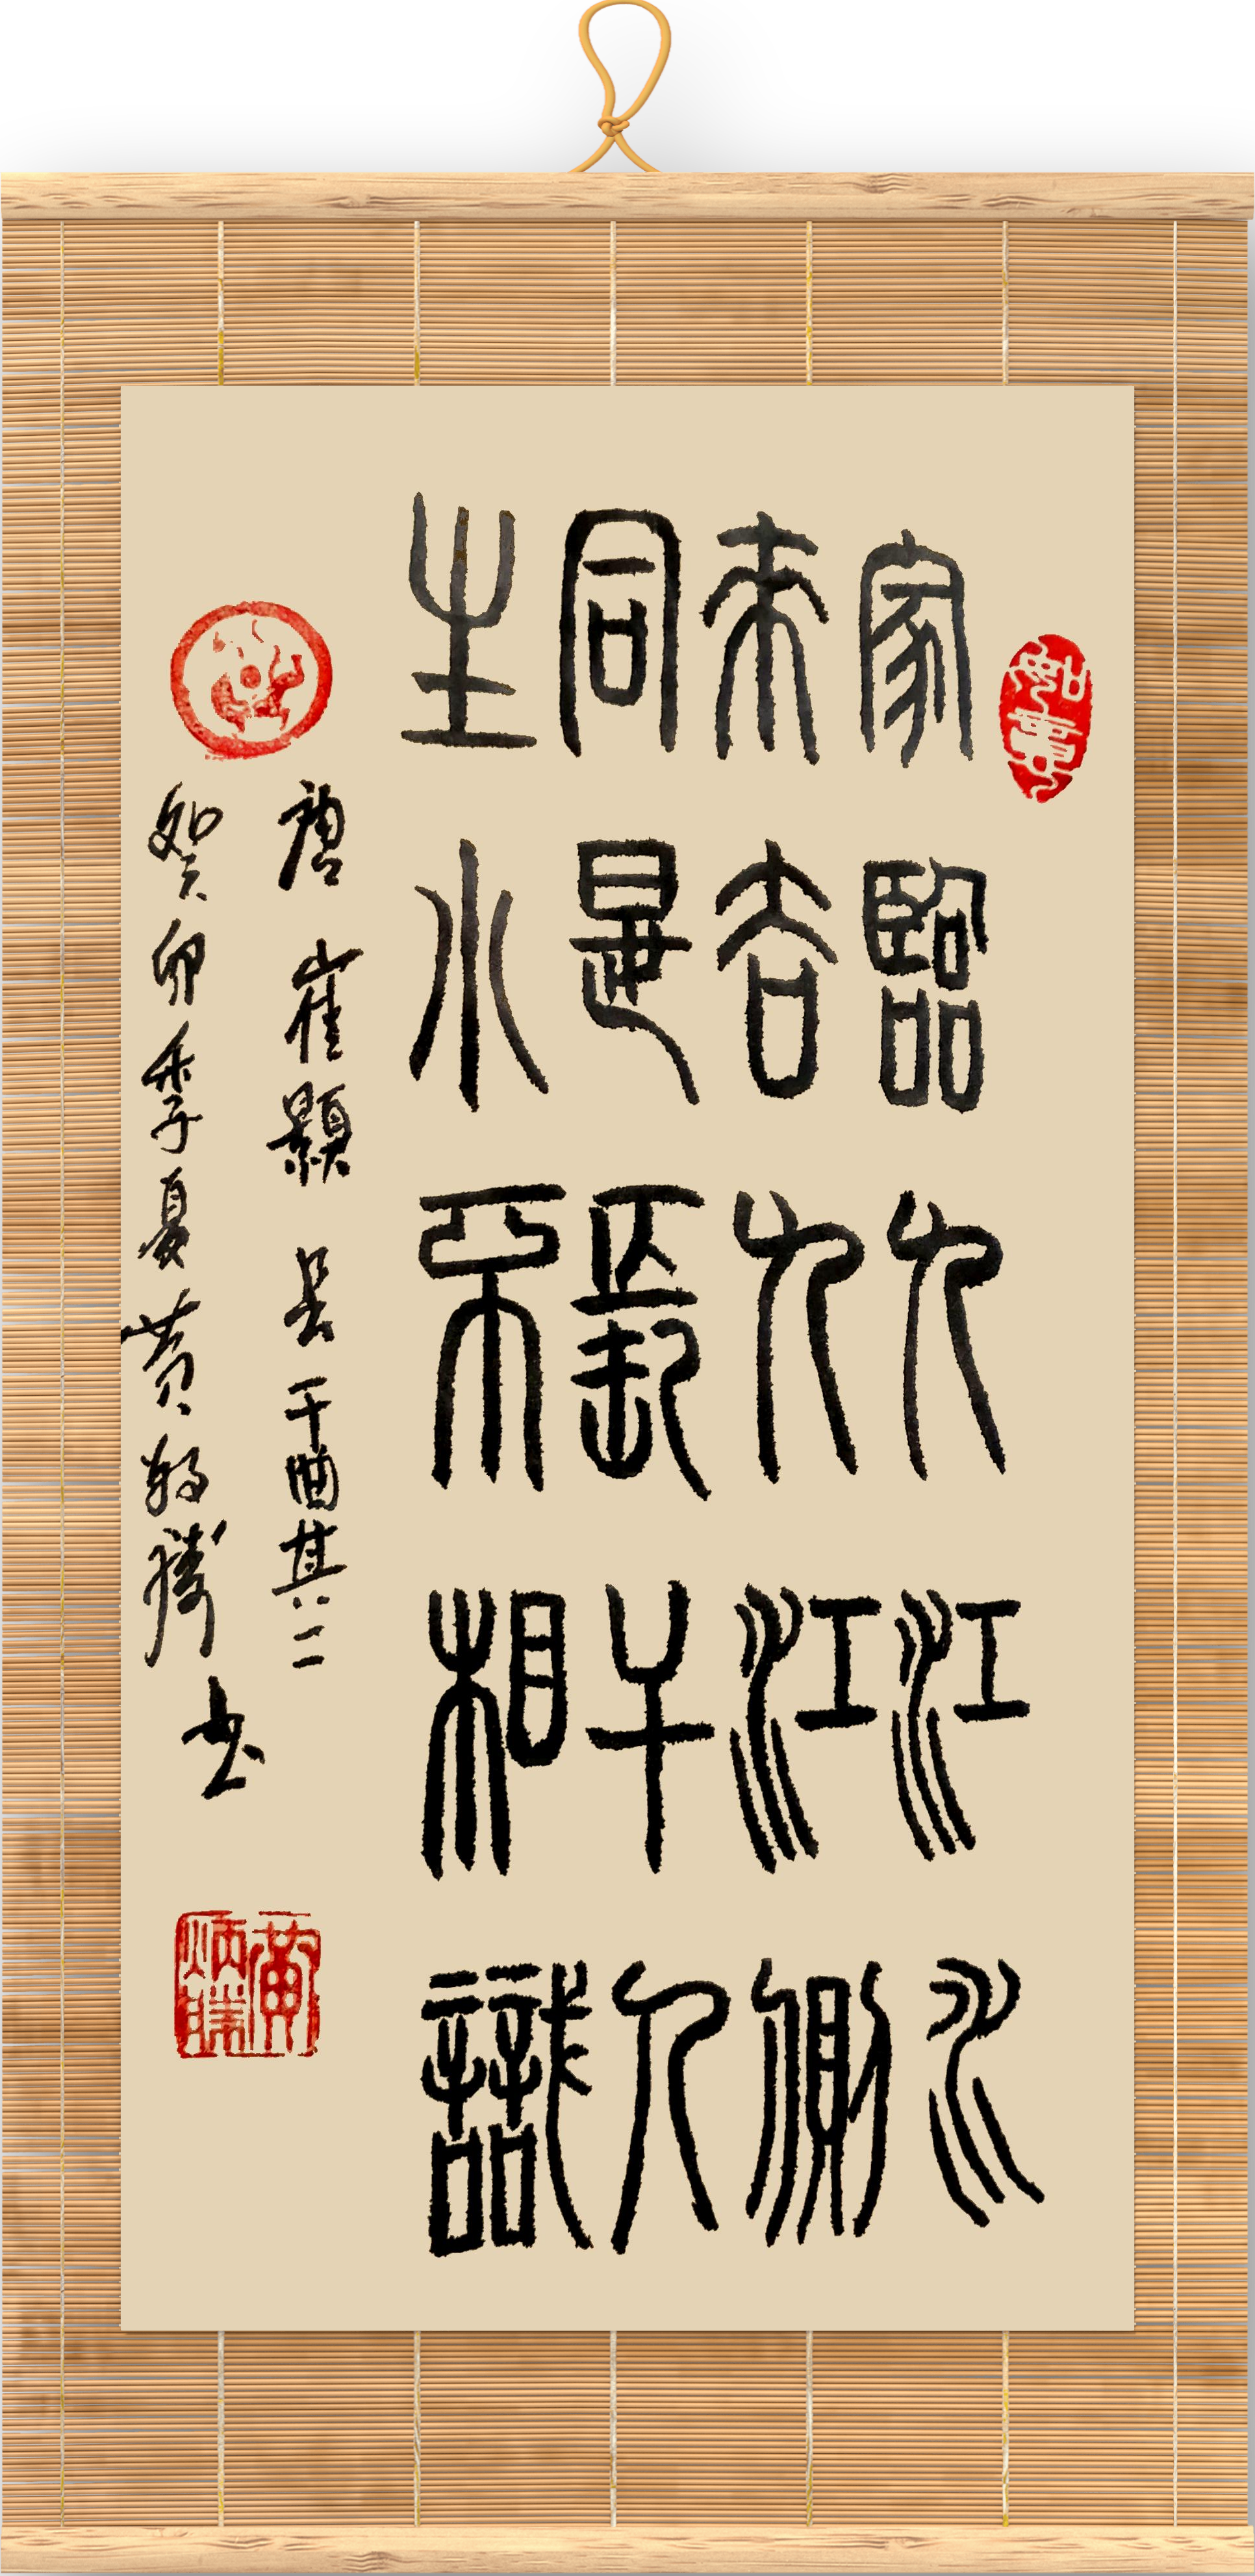 如意
家臨九江水
來去九江側
同是長干人
生小不相識
唐 崔顥 長干曲其二
癸卯季夏黃炳勝书
黃炳勝